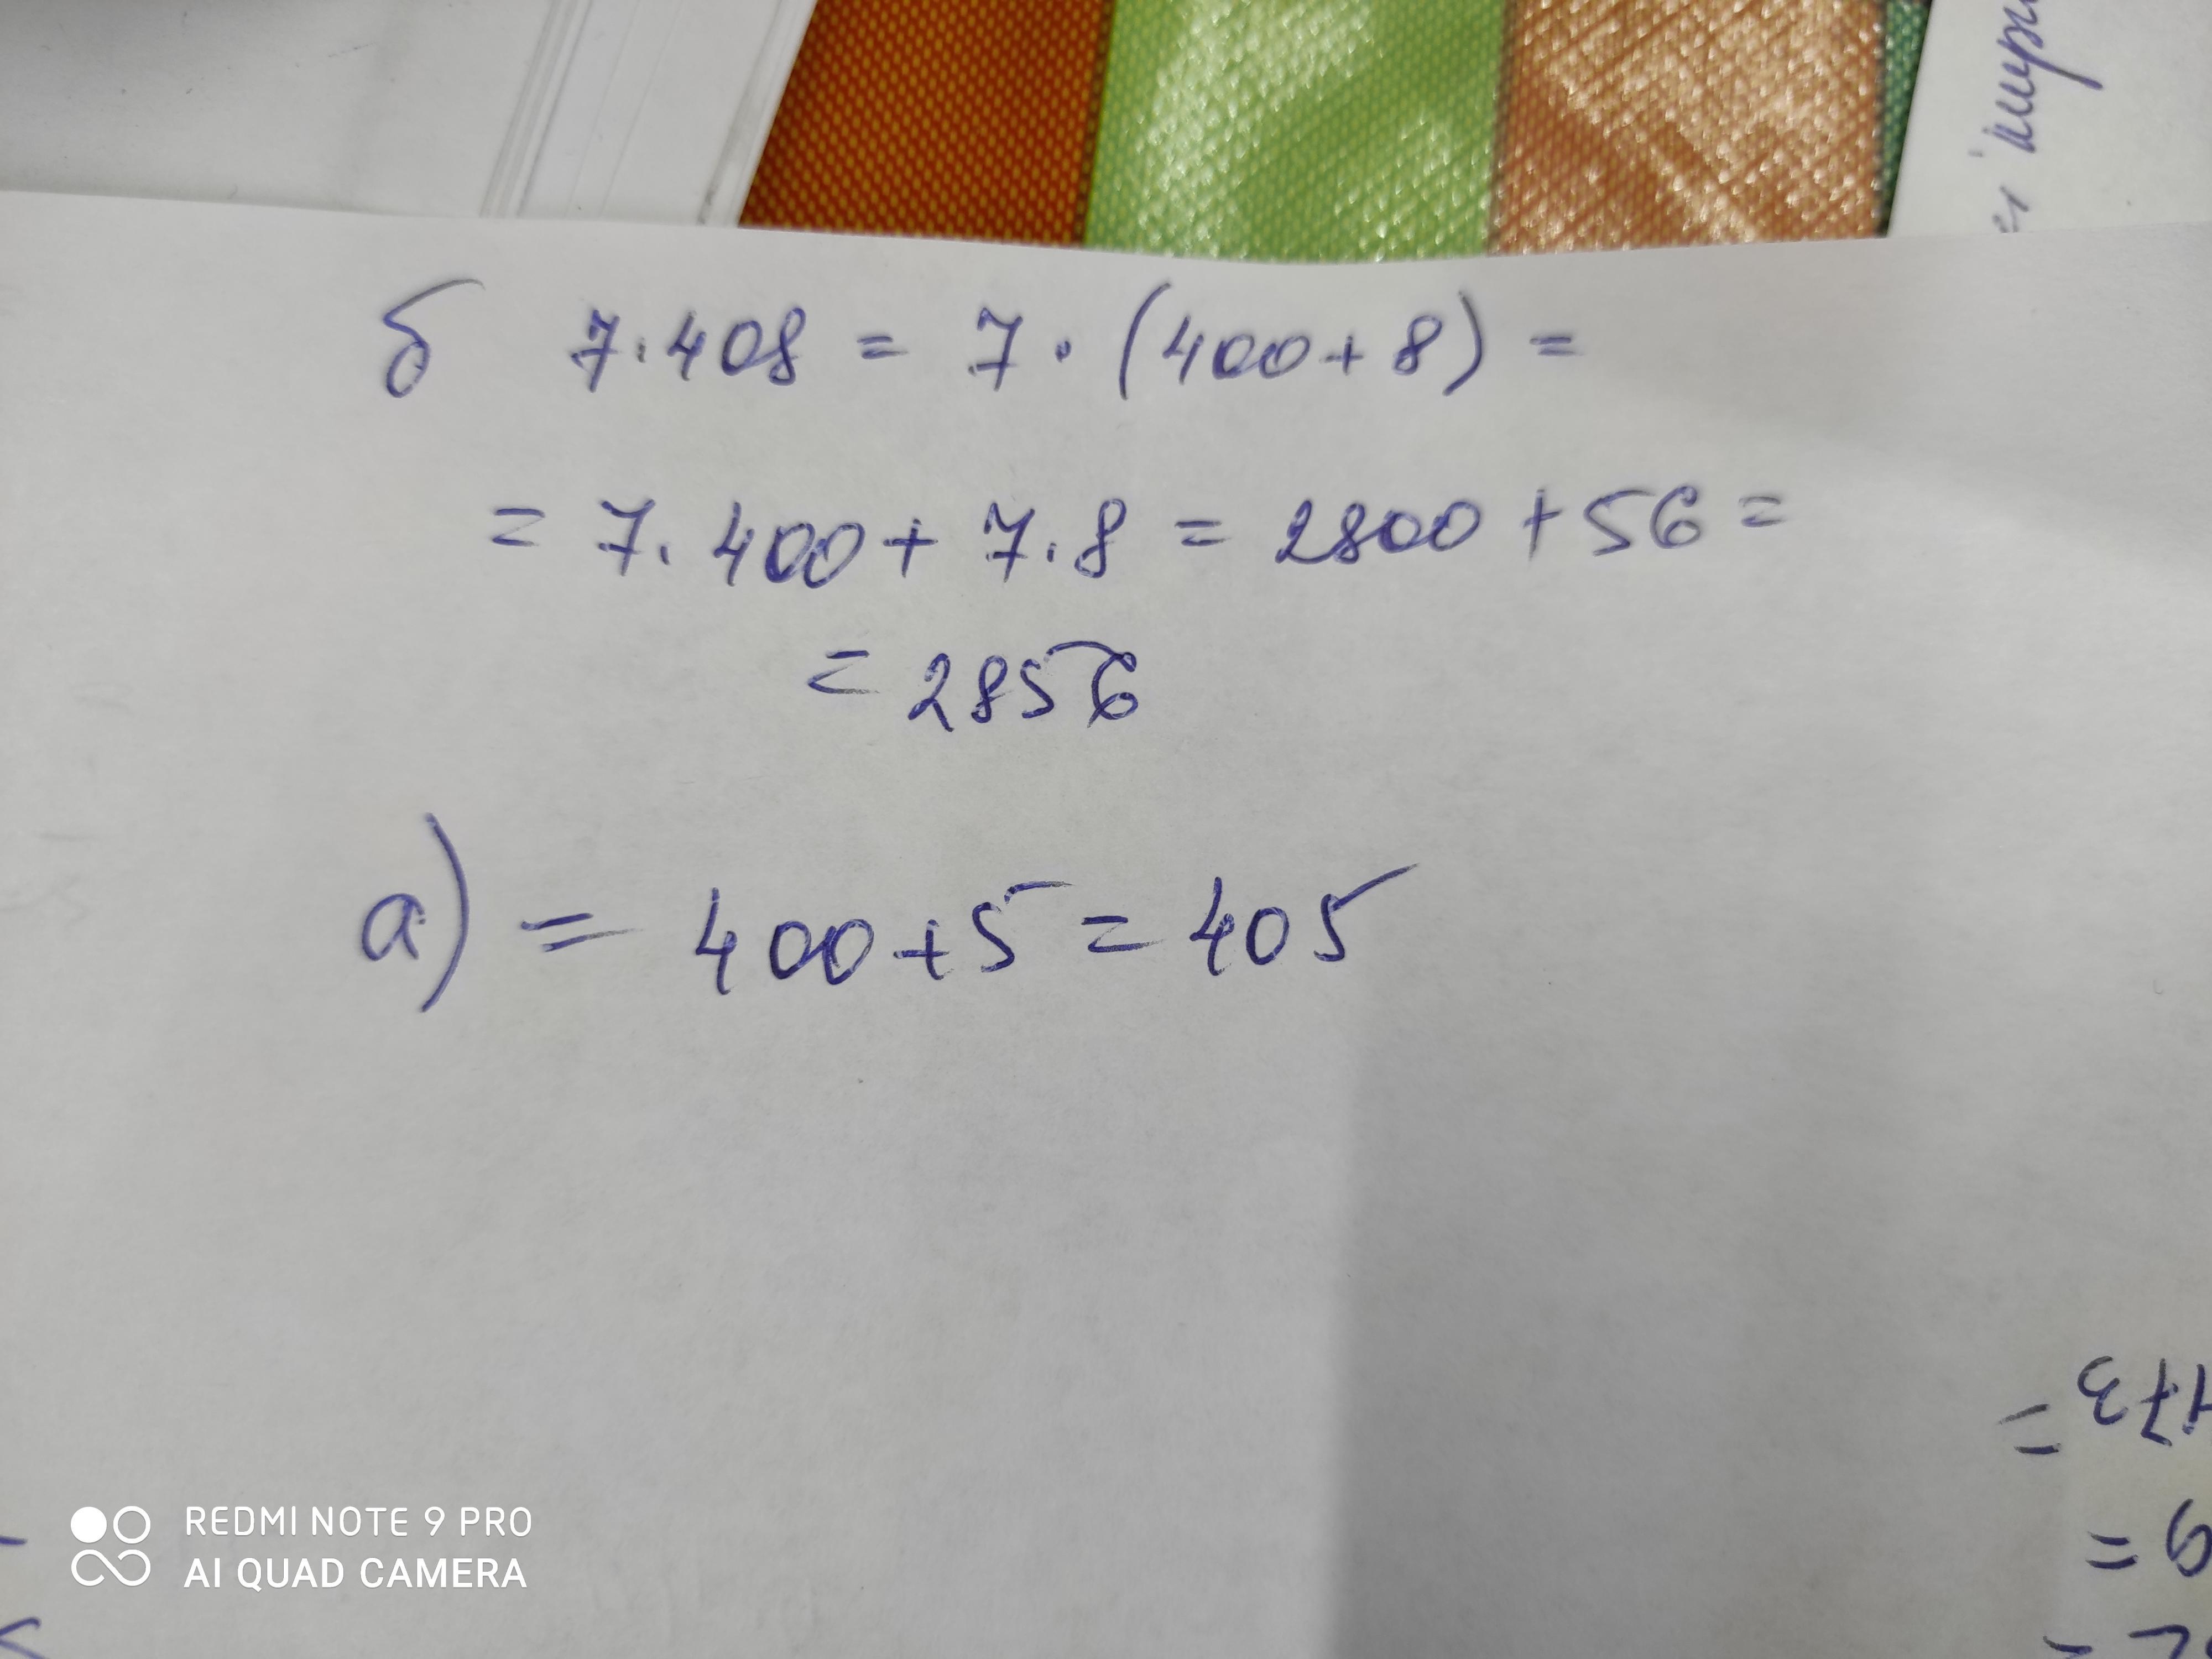 б 7·408 = 7·(400+8) =
= 7·400+7·8 = 2800+56 =
= 2856
а) = 400+5 = 405
173
=
=
REDMI NOTE 9 PRO
AI QUAD CAMERA